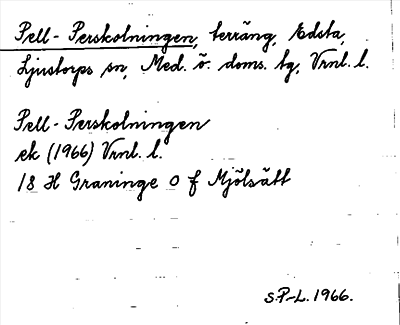 Pell-Perskolningen, terräng, Edsta,
Ljustorps sn, Med. ö. doms. tg, Vrnl. l.
Pell-Perskolningen
ek (1966) Vrnl. l.
18 H Graninge 0 f Mjölsätt
S.P-L. 1966.